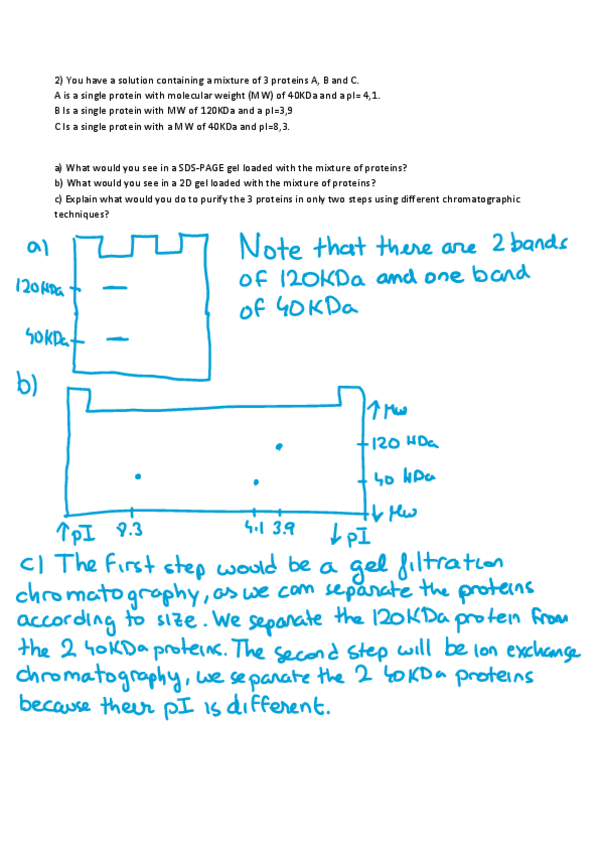 2) You have a solution containing a mixture of 3 proteins A, B and C.
A is a single protein with molecular weight (MW) of 40KDa and a pI= 4,1.
B Is a single protein with MW of 120KDa and a pI=3,9
C Is a single protein with a MW of 40KDa and pI=8,3.
a) What would you see in a SDS-PAGE gel loaded with the mixture of proteins?
b) What would you see in a 2D gel loaded with the mixture of proteins?
c) Explain what would you do to purify the 3 proteins in only two steps using different chromatographic
techniques?
a)
Note that there are 2 bands
of 120KDa and one band
of 40KDa
120KDa
40KDa
b)
↑ MW
120 KDa
40 KDa
↓ MW
↑pI 8.3 4.1 3.9 ↓ pI
c) The first step would be a gel filtration
chromatography, as we can separate the proteins
according to size. We separate the 120KDa protein from
the 2 40KDa proteins. The second step will be ion exchange
chromatography, we separate the 2 40KDa proteins
because their pI is different.